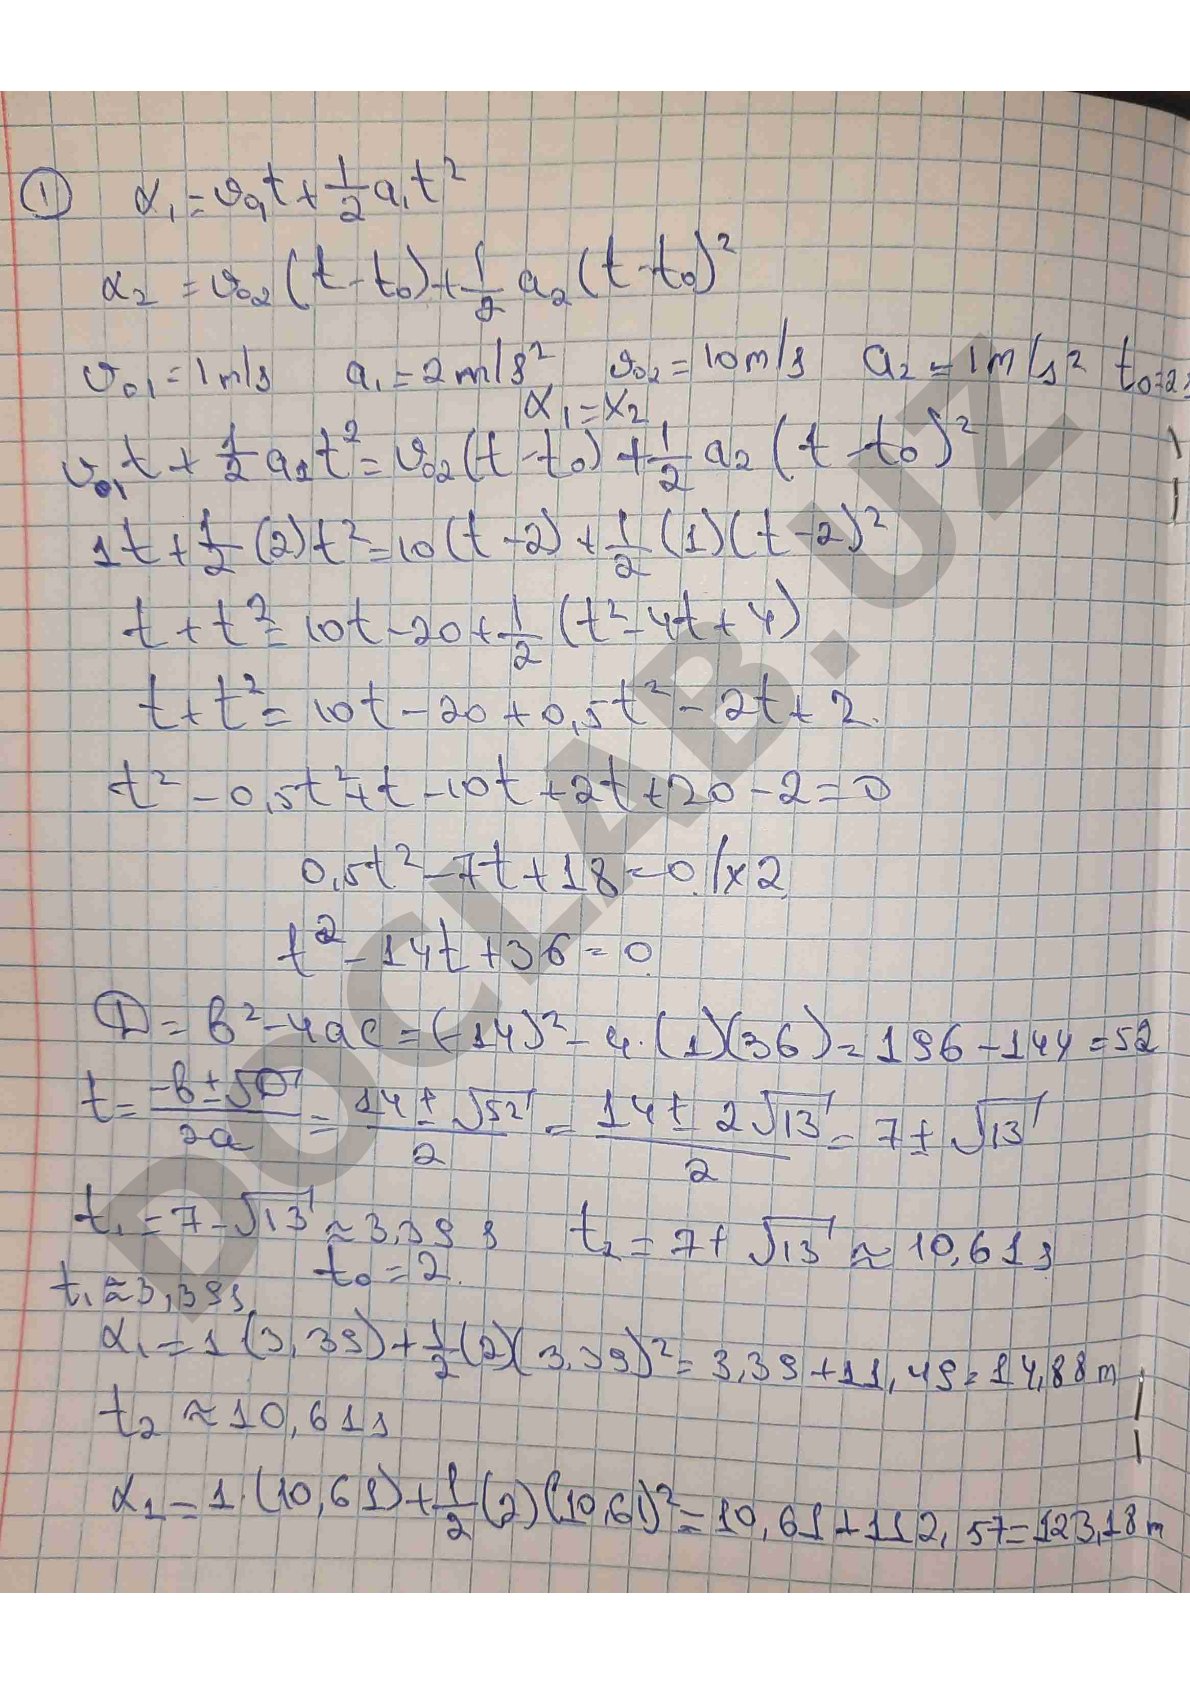 ① x₁ = v₀₁t + 1/2 a₁t²
x₂ = v₀₂(t - t₀) + 1/2 a₂(t - t₀)²
v₀₁ = 1 m/s a₁ = 2 m/s² v₀₂ = 10 m/s a₂ = 1 m/s² t₀ = 2s
x₁ = x₂
v₀₁t + 1/2 a₁t² = v₀₂(t - t₀) + 1/2 a₂(t - t₀)²
1t + 1/2 (2)t² = 10(t - 2) + 1/2 (1)(t - 2)²
t + t² = 10t - 20 + 1/2 (t² - 4t + 4)
t + t² = 10t - 20 + 0,5t² - 2t + 2.
t² - 0,5t² + t - 10t + 2t + 20 - 2 = 0
0,5t² - 7t + 18 = 0 /x2
t² - 14t + 36 = 0
D = b² - 4ac = (-14)² - 4·(1)(36) = 196 - 144 = 52
t = (-b ± √D)/2a = (14 ± √52)/2 = (14 ± 2√13)/2 = 7 ± √13
t₁ = 7 - √13 ≈ 3,39 s t₂ = 7 + √13 ≈ 10,61 s
t₀ = 2.
t₁ ≈ 3,39 s
x₁ = 1·(3,39) + 1/2 (2)(3,39)² = 3,39 + 11,49 = 14,88 m
t₂ ≈ 10,61 s
x₁ = 1·(10,61) + 1/2 (2)(10,61)² = 10,61 + 112,57 = 123,18 m
DOCLAB.UZ